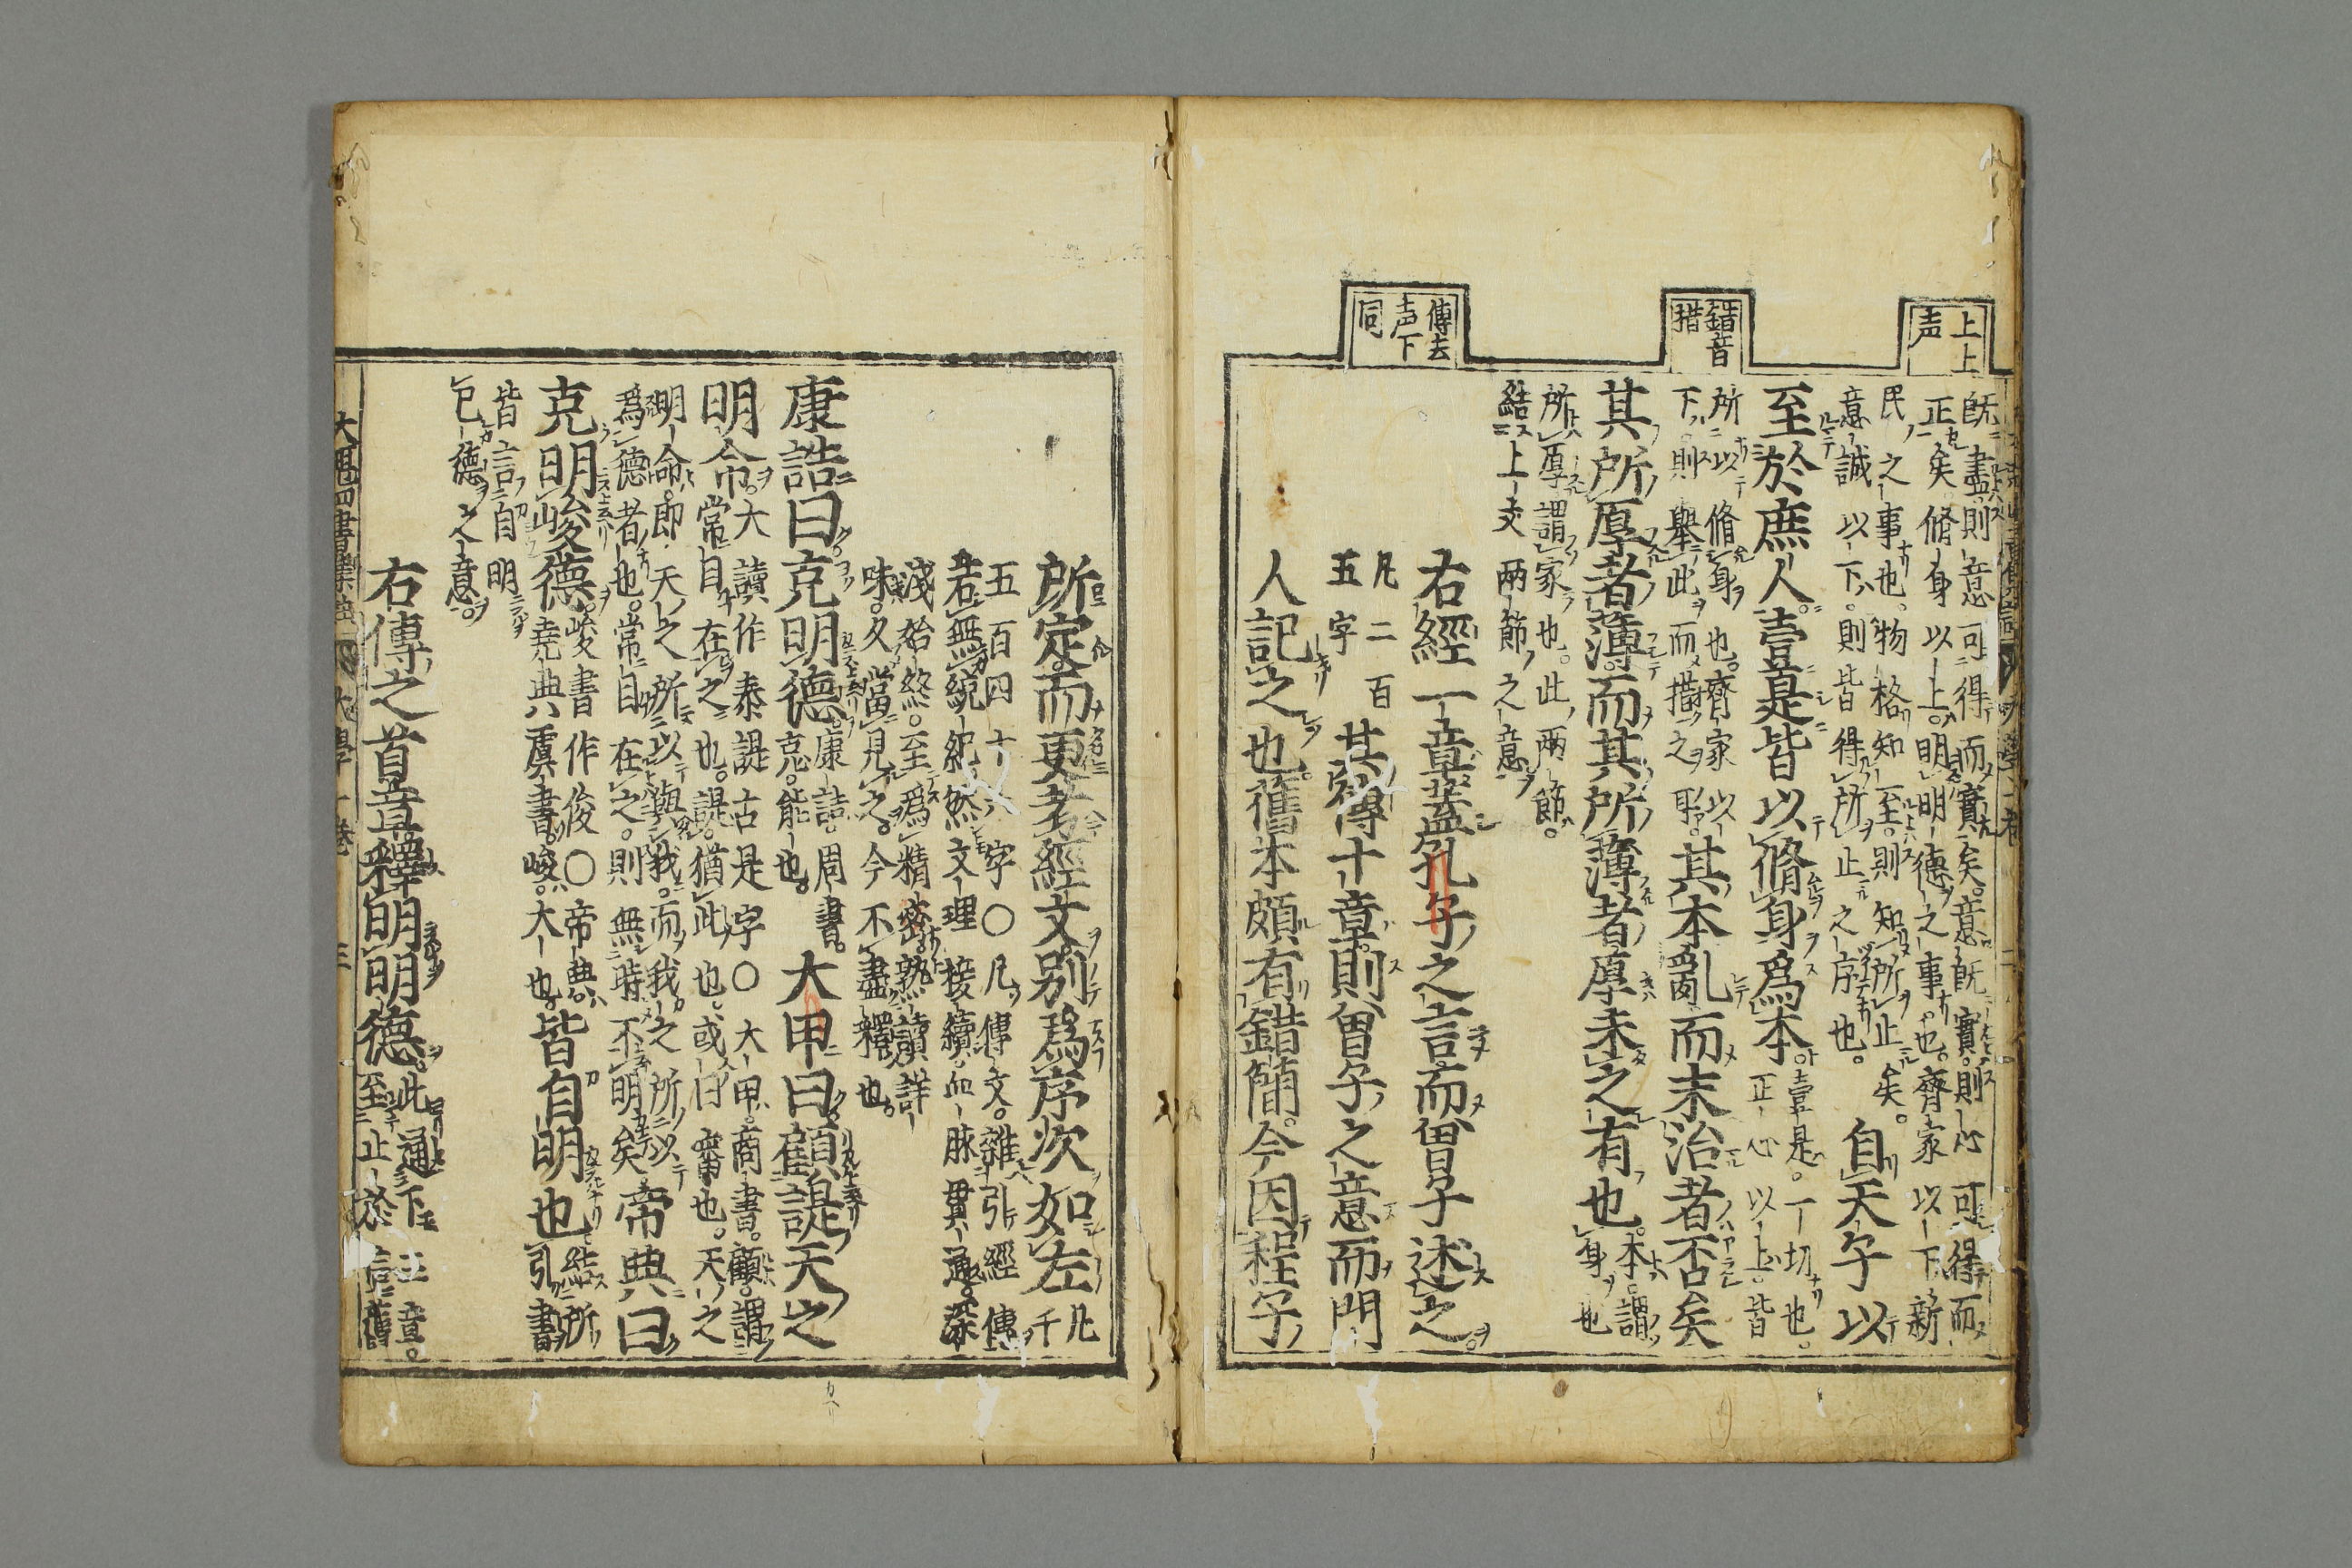 上上
声
錯音
措
傳去
声下
同
既盡則意可得而實矣。意既實。則心可得而
正矣。脩身以上。明明德之事也。齊家以下。新
民之事也。物格知至。則知所止矣。
意誠以下。則皆得所止之序也。
自天子以
至於庶人。壹是皆以脩身爲本。
壹是。一切也。
正心以上。皆
所以脩身也。齊家以
下。則舉此而措之耳。
其本亂而末治者否矣
其所厚者薄。而其所薄者厚未之有也。
本謂
身也
所厚謂家也。此兩節。
結上文兩節之意
右經一章。蓋孔子之言。而曾子述之。
凡二百
五字
其傳十章。則曾子之意而門
人記之也。舊本頗有錯簡。今因程子
所定。而更考經文。别爲序次如左
凡
千
五百四十六字〇凡傳文。雜引經傳
若無統紀。然文理接續。血脉貫通。深
淺始終。至爲精密。熟讀詳
味。久當見之。今不盡釋也。
康誥曰。克明德。
康誥。周書。
克。能也。
大甲曰。顧諟天之
明命。
大讀作泰諟古是字〇大甲。商書。顧。謂
常目在之也。諟。猶此也。或曰審也。天之
明命。即天之所以與我。而我之所以
爲德者也。常目在之。則無時不明矣
帝典曰
克明峻德。
峻書作俊〇帝典。
堯典。虞書。峻。大也。
皆自明也
結所
引書
皆言自明
已德之意。
右傳之首章釋明明德。
此通下三章。
至止於信舊
大魁四書集註
大學一卷 三